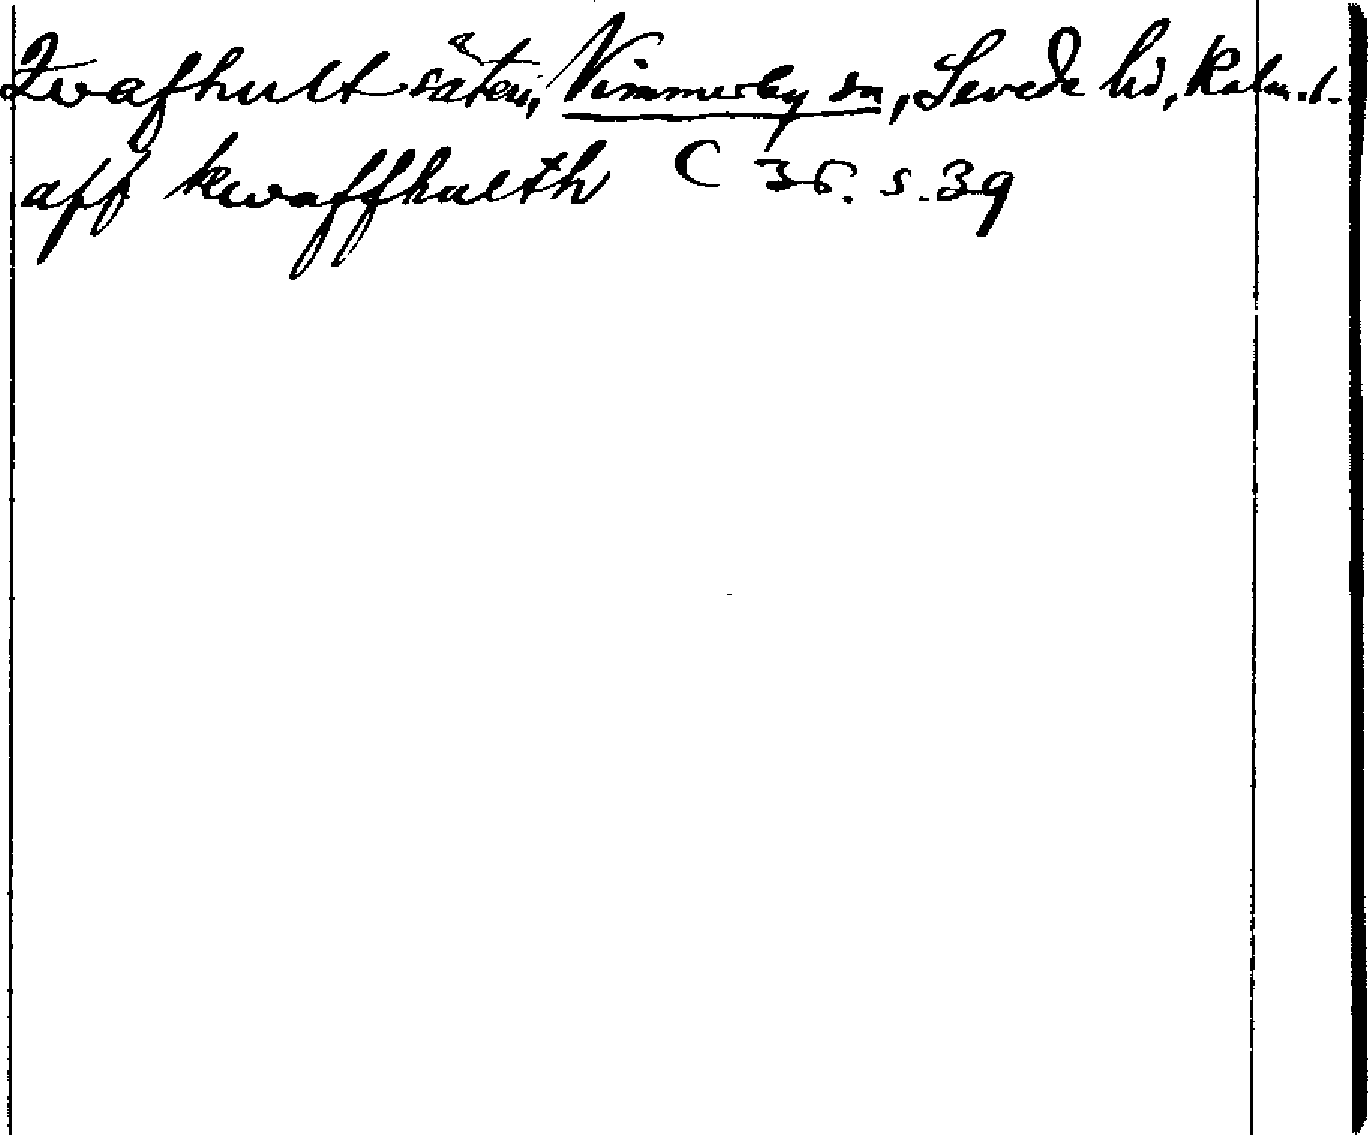 Kvafhult säteri, Vimmerby sn, Sevede hd, Kalm. l.
aff kwaffhulth C 36. s. 39